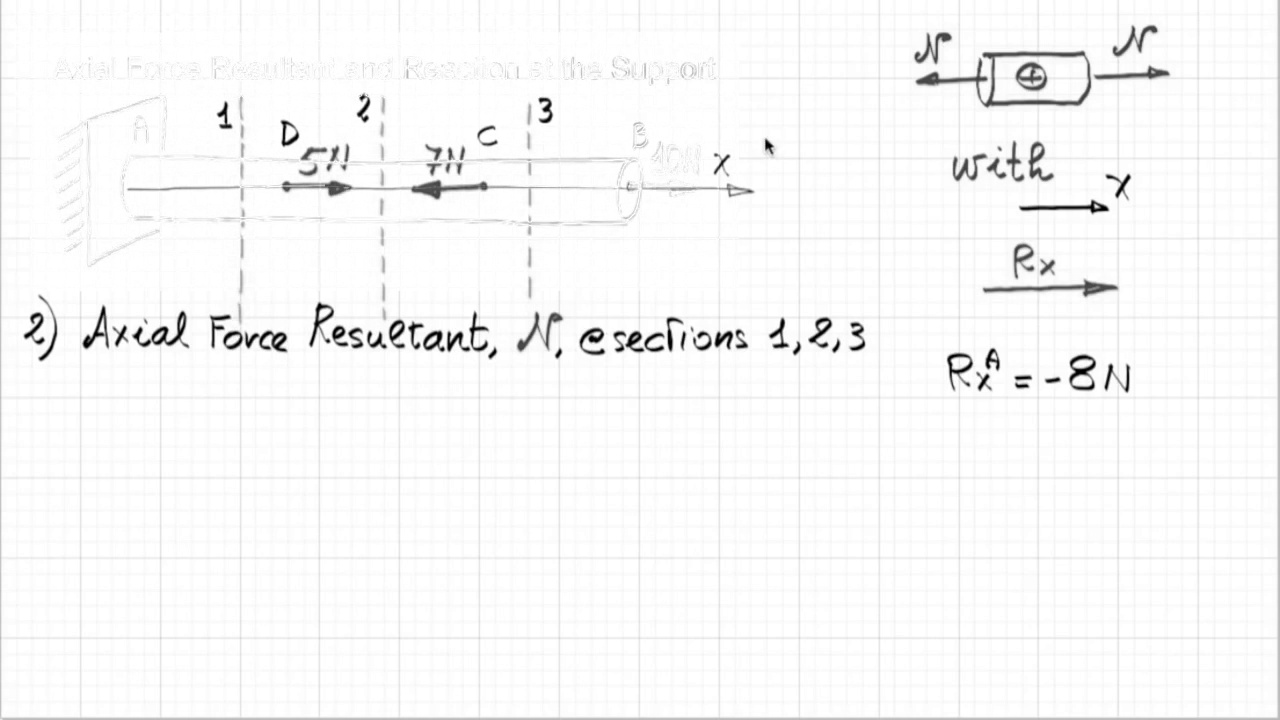 Axial Force Resultant and Reaction at the Support
1 2 3
A D C B
5N 7N 10N X
2) Axial Force Resultant, N, @ sections 1, 2, 3
N + N
with
X
Rx
RxA = -8N